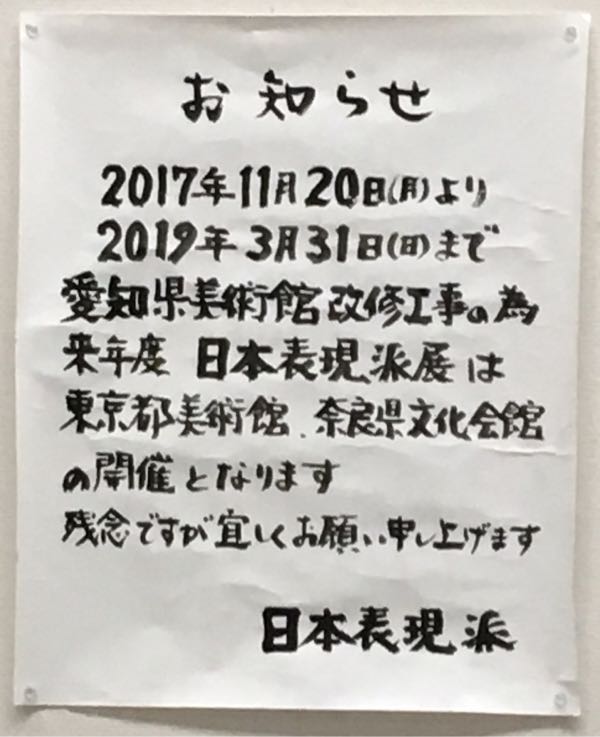 お知らせ
2017年11月20日(月)より
2019年3月31日(日)まで
愛知県美術館改修工事の為
来年度 日本表現派展は
東京都美術館、奈良県文化会館
の開催となります
残念ですが宜しくお願い申し上げます
日本表現派